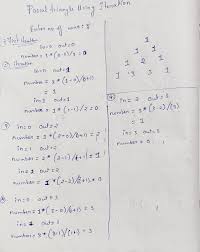 Pascal triangle Using Iteration
Enter no of rows : 5
① First iteration
in=0 out=0
number = 1*(0-0)/1 = 0
② iteration
in=0 out=1
number = 1*(1-0)/(0+1)
= 1
in=1 out=1
number = 1*(1-1)/2 = 0
③ in=0 out=2
number = 1*(2-0)/(0+1) = 2
in=1 out=2
number = 2*(2-1)/(1+1) = 1
in=2 out=2
number = 1*(2-2)/(2+1) = 0
④ in=0 out=3
number = 1*(3-0)/(0+1) = 3
in=1 out=3
number = 3*(3-1)/(1+1) = 3
1
1 1
1 2 1
1 3 3 1
in=2 out=3
number = 3*(3-2)/(3)
= 1
in=3 out=3
number = 0